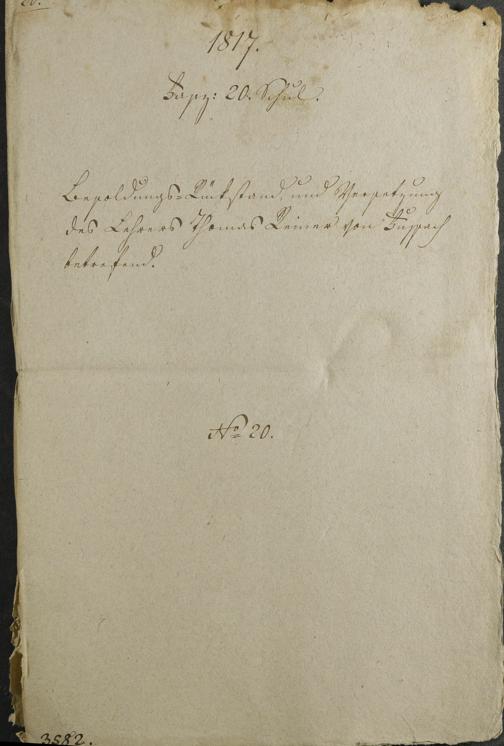 20.
1817.
Fasz: 20. Schul.
Besoldungs-Rückstand, und Versetzung
des Lehrers Thomas Reiner von
betrefend.
No 20.
3582.